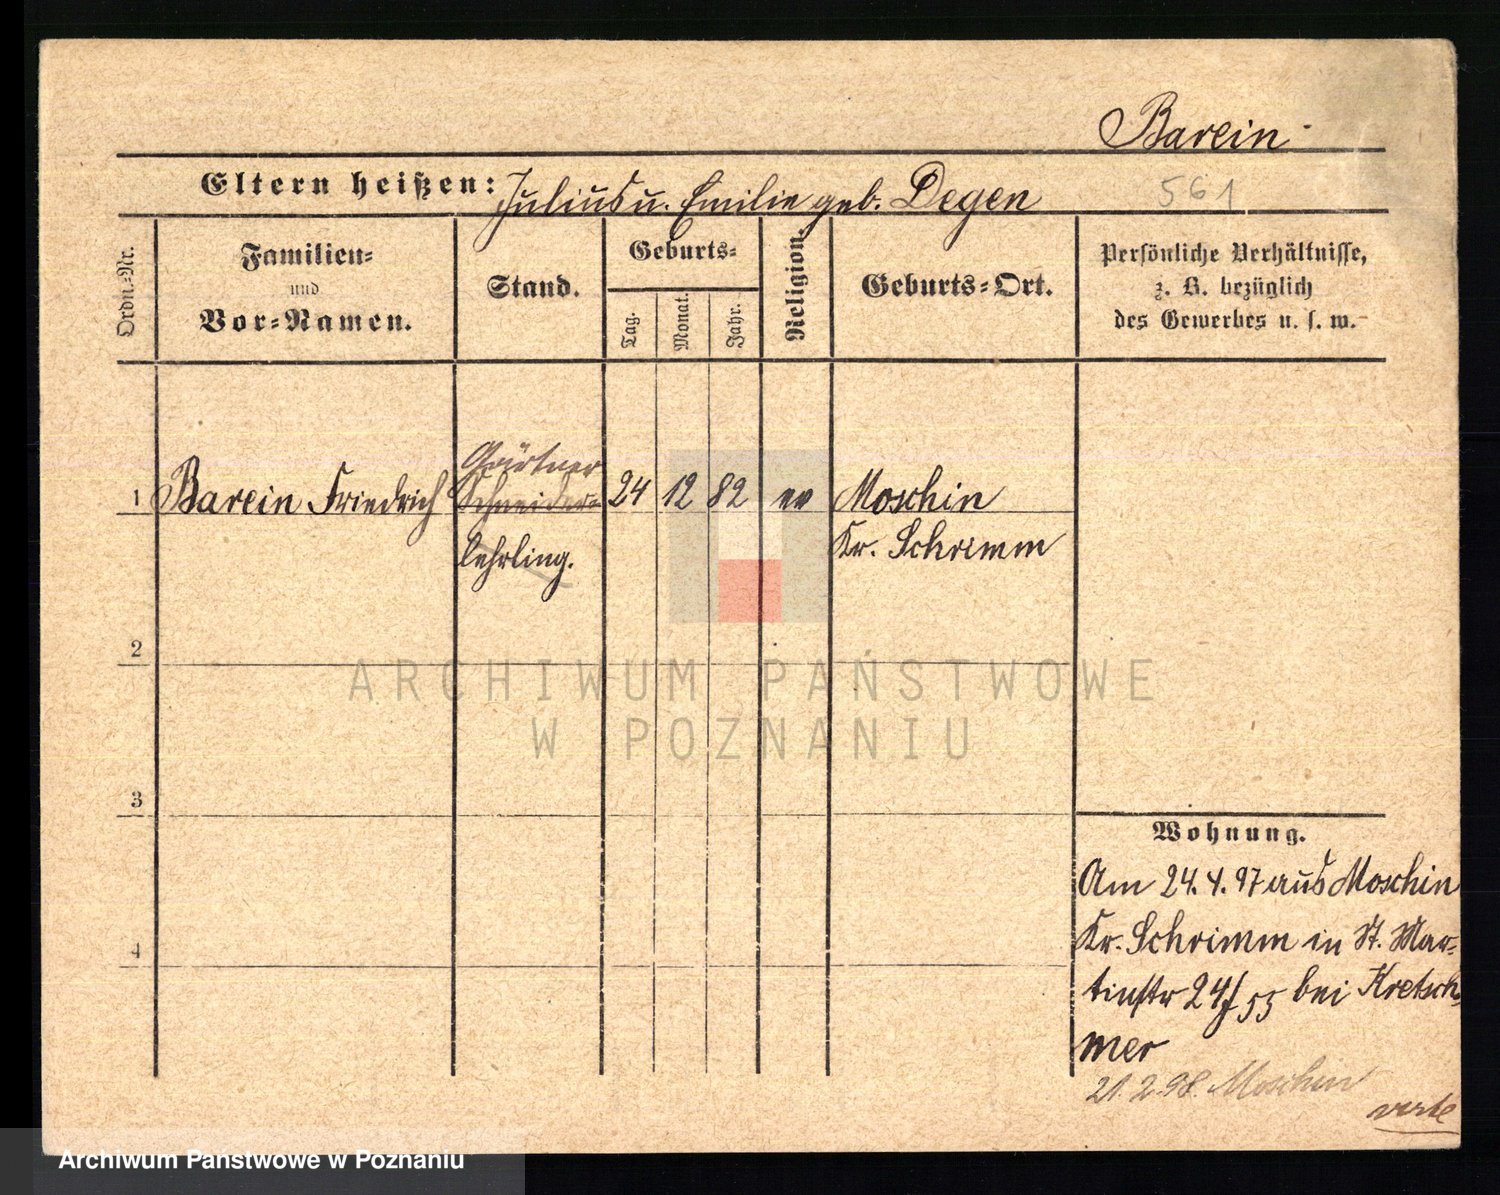 Barein
Eltern heißen: Julius u. Emilie geb. Degen
561
Ordn.-Nr.
Familien-
und
Vor-Namen.
Stand.
Geburts-
Tag.
Monat.
Jahr.
Religion.
Geburts-Ort.
Persönliche Verhältnisse,
z. B. bezüglich
des Gewerbes u. s. w.
Gärtner
1 Barein Friedrich Schneider- 24 12 82 ev Moschin
lehrling. Kr. Schrimm
2
3
4
Wohnung.
Am 24.4.97 aus Moschin
Kr. Schrimm in St. Mar-
tinstr 24/55 bei Kretsch-
mer
21.2.98. Moschin
verte
ARCHIWUM PAŃSTWOWE
W POZNANIU
Archiwum Państwowe w Poznaniu